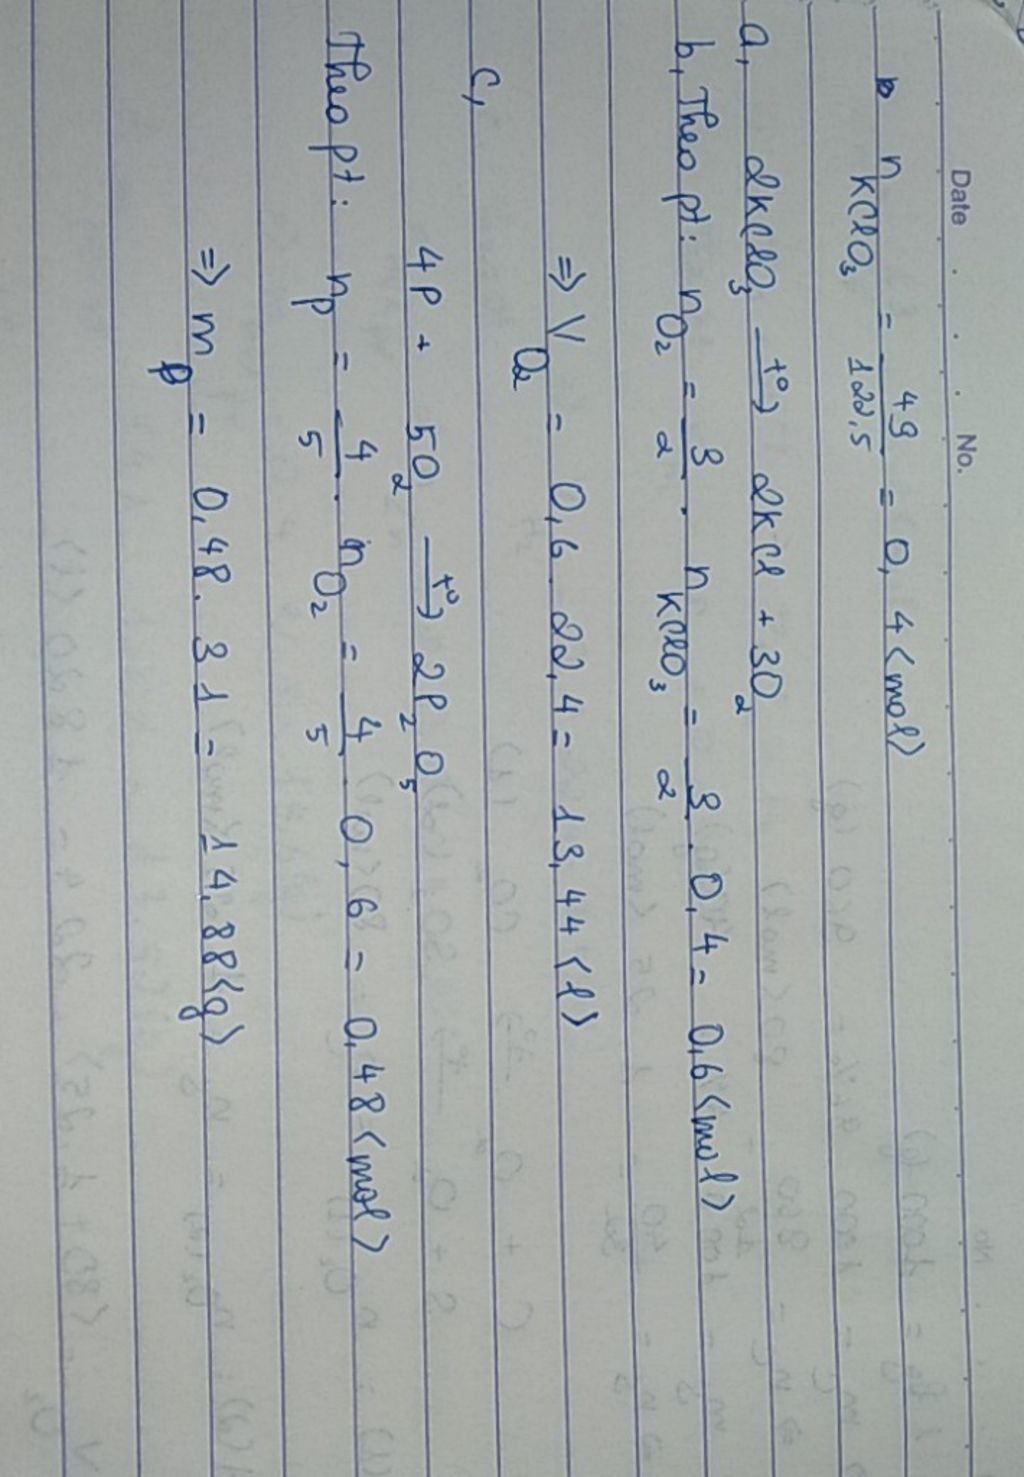 Date No.
n KClO₃ = 49/122,5 = 0,4 <mol>
a, 2KClO₃ —t°→ 2KCl + 3O₂
b, Theo pt: n O₂ = 3/2 . n KClO₃ = 3/2 . 0,4 = 0,6 <mol>
=> V O₂ = 0,6 . 22,4 = 13,44 <l>
c,
4P + 5O₂ —t°→ 2P₂O₅
Theo pt: n P = 4/5 . n O₂ = 4/5 . 0,6 = 0,48 <mol>
=> m P = 0,48 . 31 = 14,88 <g>